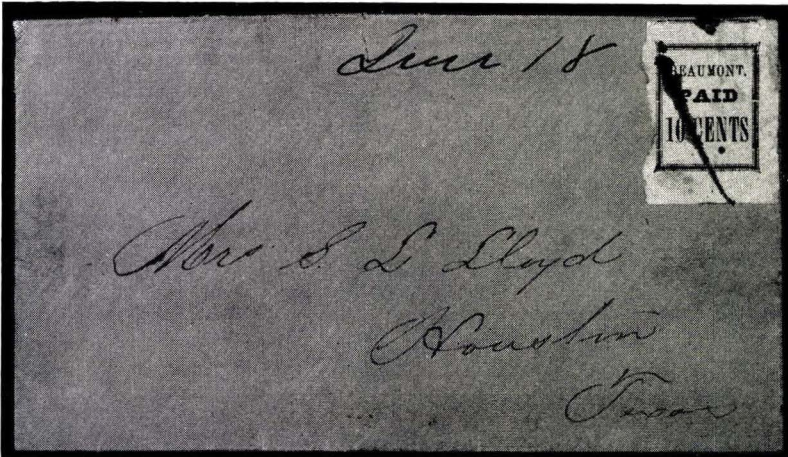 June 18
BEAUMONT.
PAID
10 CENTS
Mrs S. L Lloyd
Houston
Texas